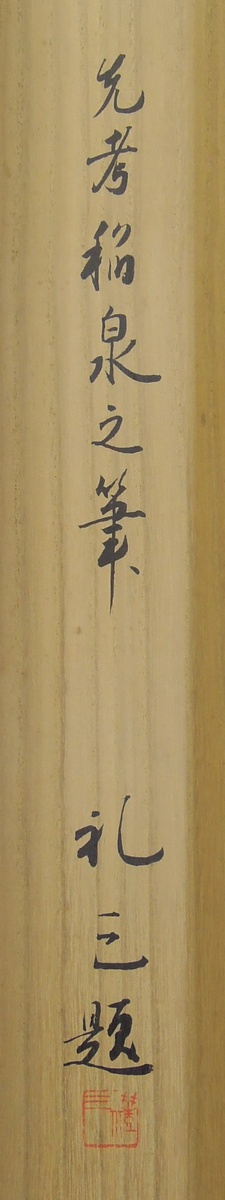 先考稲泉之筆 礼三題